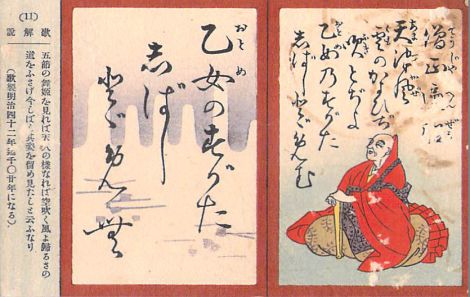 僧正遍昭
天津風
雲のかよひぢ
吹とぢよ
乙女乃すがた
しばしとゞめむ
乙女のすがた
おとめ
しばし
とゞめむ
(11)
歌解説
五節の舞姫を見れば天人の樣なれば空吹く風よ歸るさの
道をふさげ今しばし其姿を留め見たしと云ふなり
(歌製明治四十二年迄千〇廿年になる)